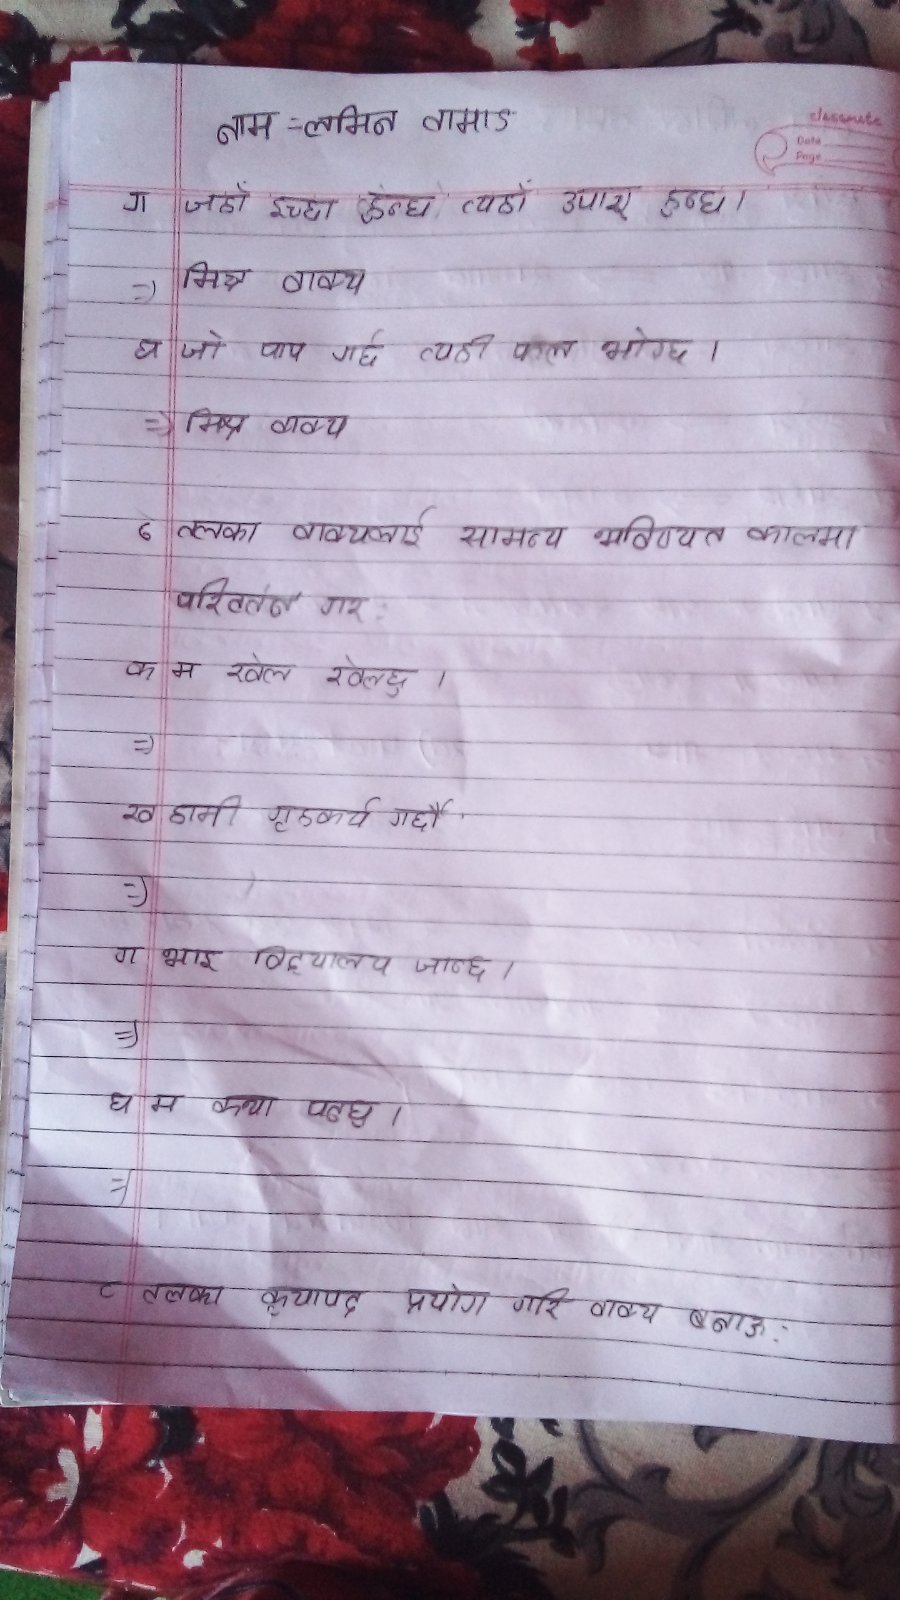 नाम =लमिन तामाङ
classmate
Date
Page
ग जहाँ इच्छा हुन्छ त्यहाँ उपाए हुन्छ।
=) मिश्र वाक्य
घ जो पाप गर्छ त्यही फल भोग्छ ।
=) मिश्र वाक्य
तलका वाक्यलाई सामन्य भविष्यत कालमा
परिवर्तन गर :
क म खेल खेल्छु ।
=)
ख हामी गृहकर्य गर्छौं
=)
ग भाइ विद्यालय जान्छ ।
=)
घ म कथा पढ्छु ।
=)
८ तलका कृयापद प्रयोग गरि वाक्य बनाऊ :